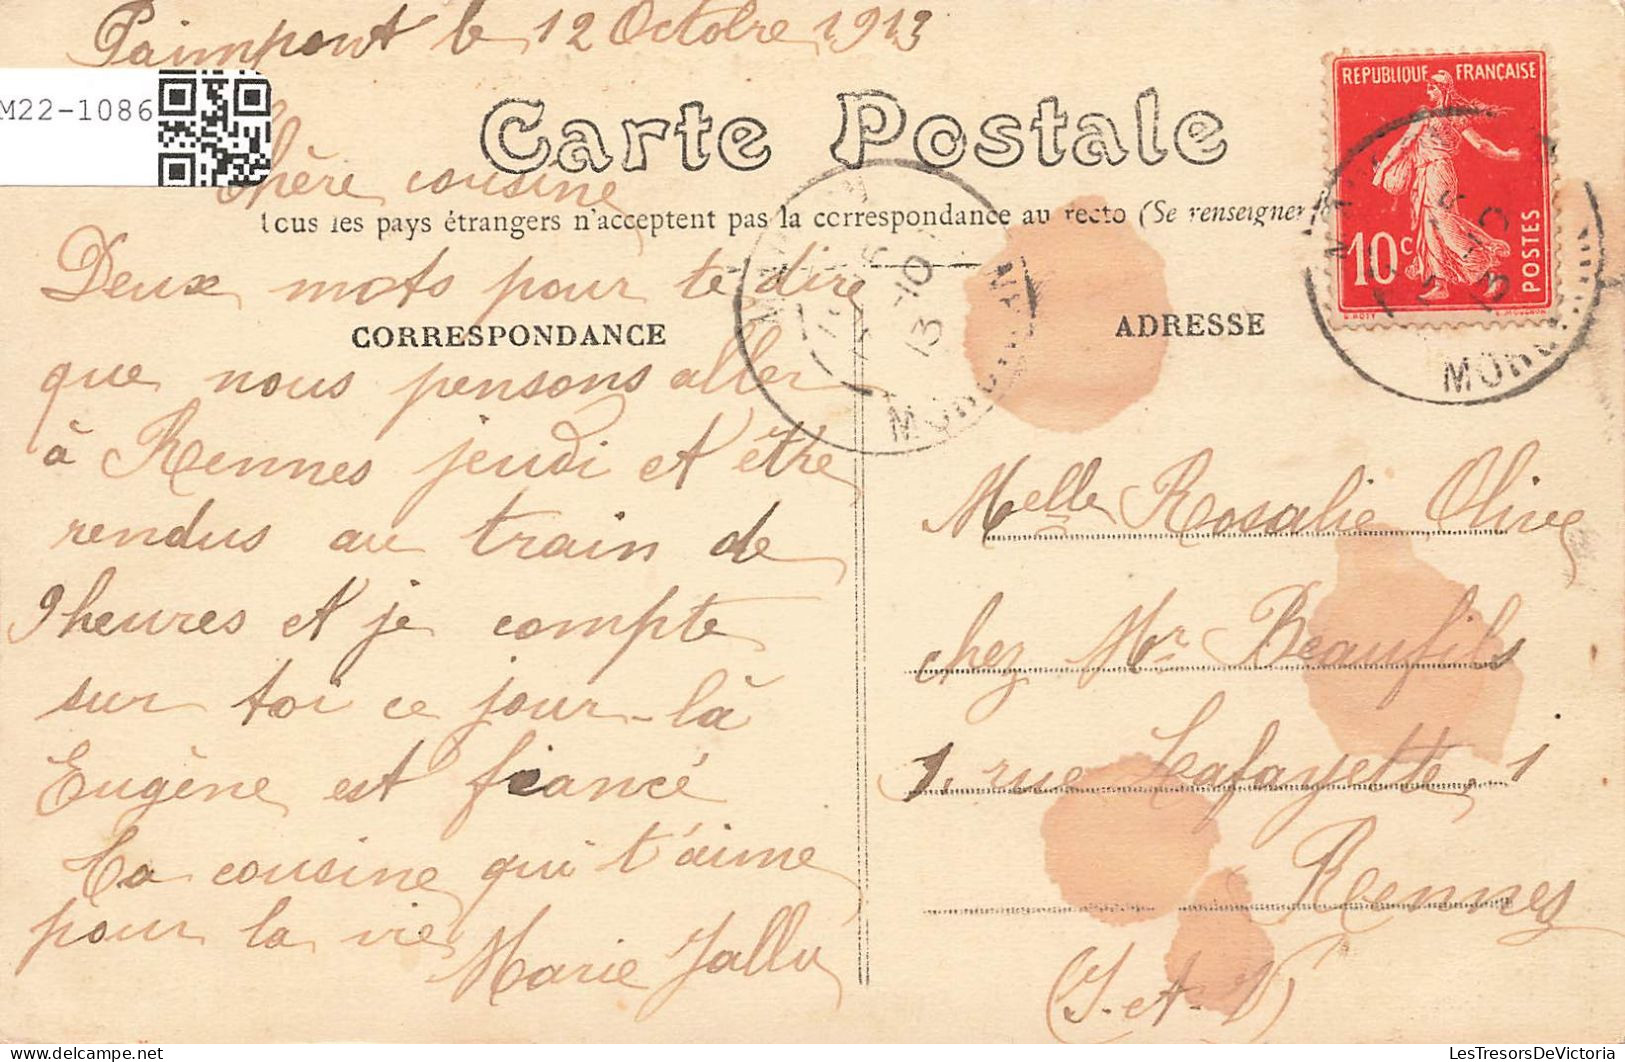 Paimpont le 12 Octobre 1913
M22-1086
Carte Postale
Chère cousine
Tous les pays étrangers n'acceptent pas la correspondance au recto (Se renseigner
Deux mots pour te dire
CORRESPONDANCE
que nous pensons aller
à Rennes jeudi et être
rendus au train de
9 heures et je compte
sur toi ce jour-là
Eugène est fiancé
Ta cousine qui t'aime
pour la vie
Marie Jallu
REPUBLIQUE FRANÇAISE
10c
POSTES
13
10
13
ADRESSE
Melle Rosalie Olive
chez Mr Beaufils
1, rue Lafayette, 1
Rennes
(I-et-V)
LesTresorsDeVictoria